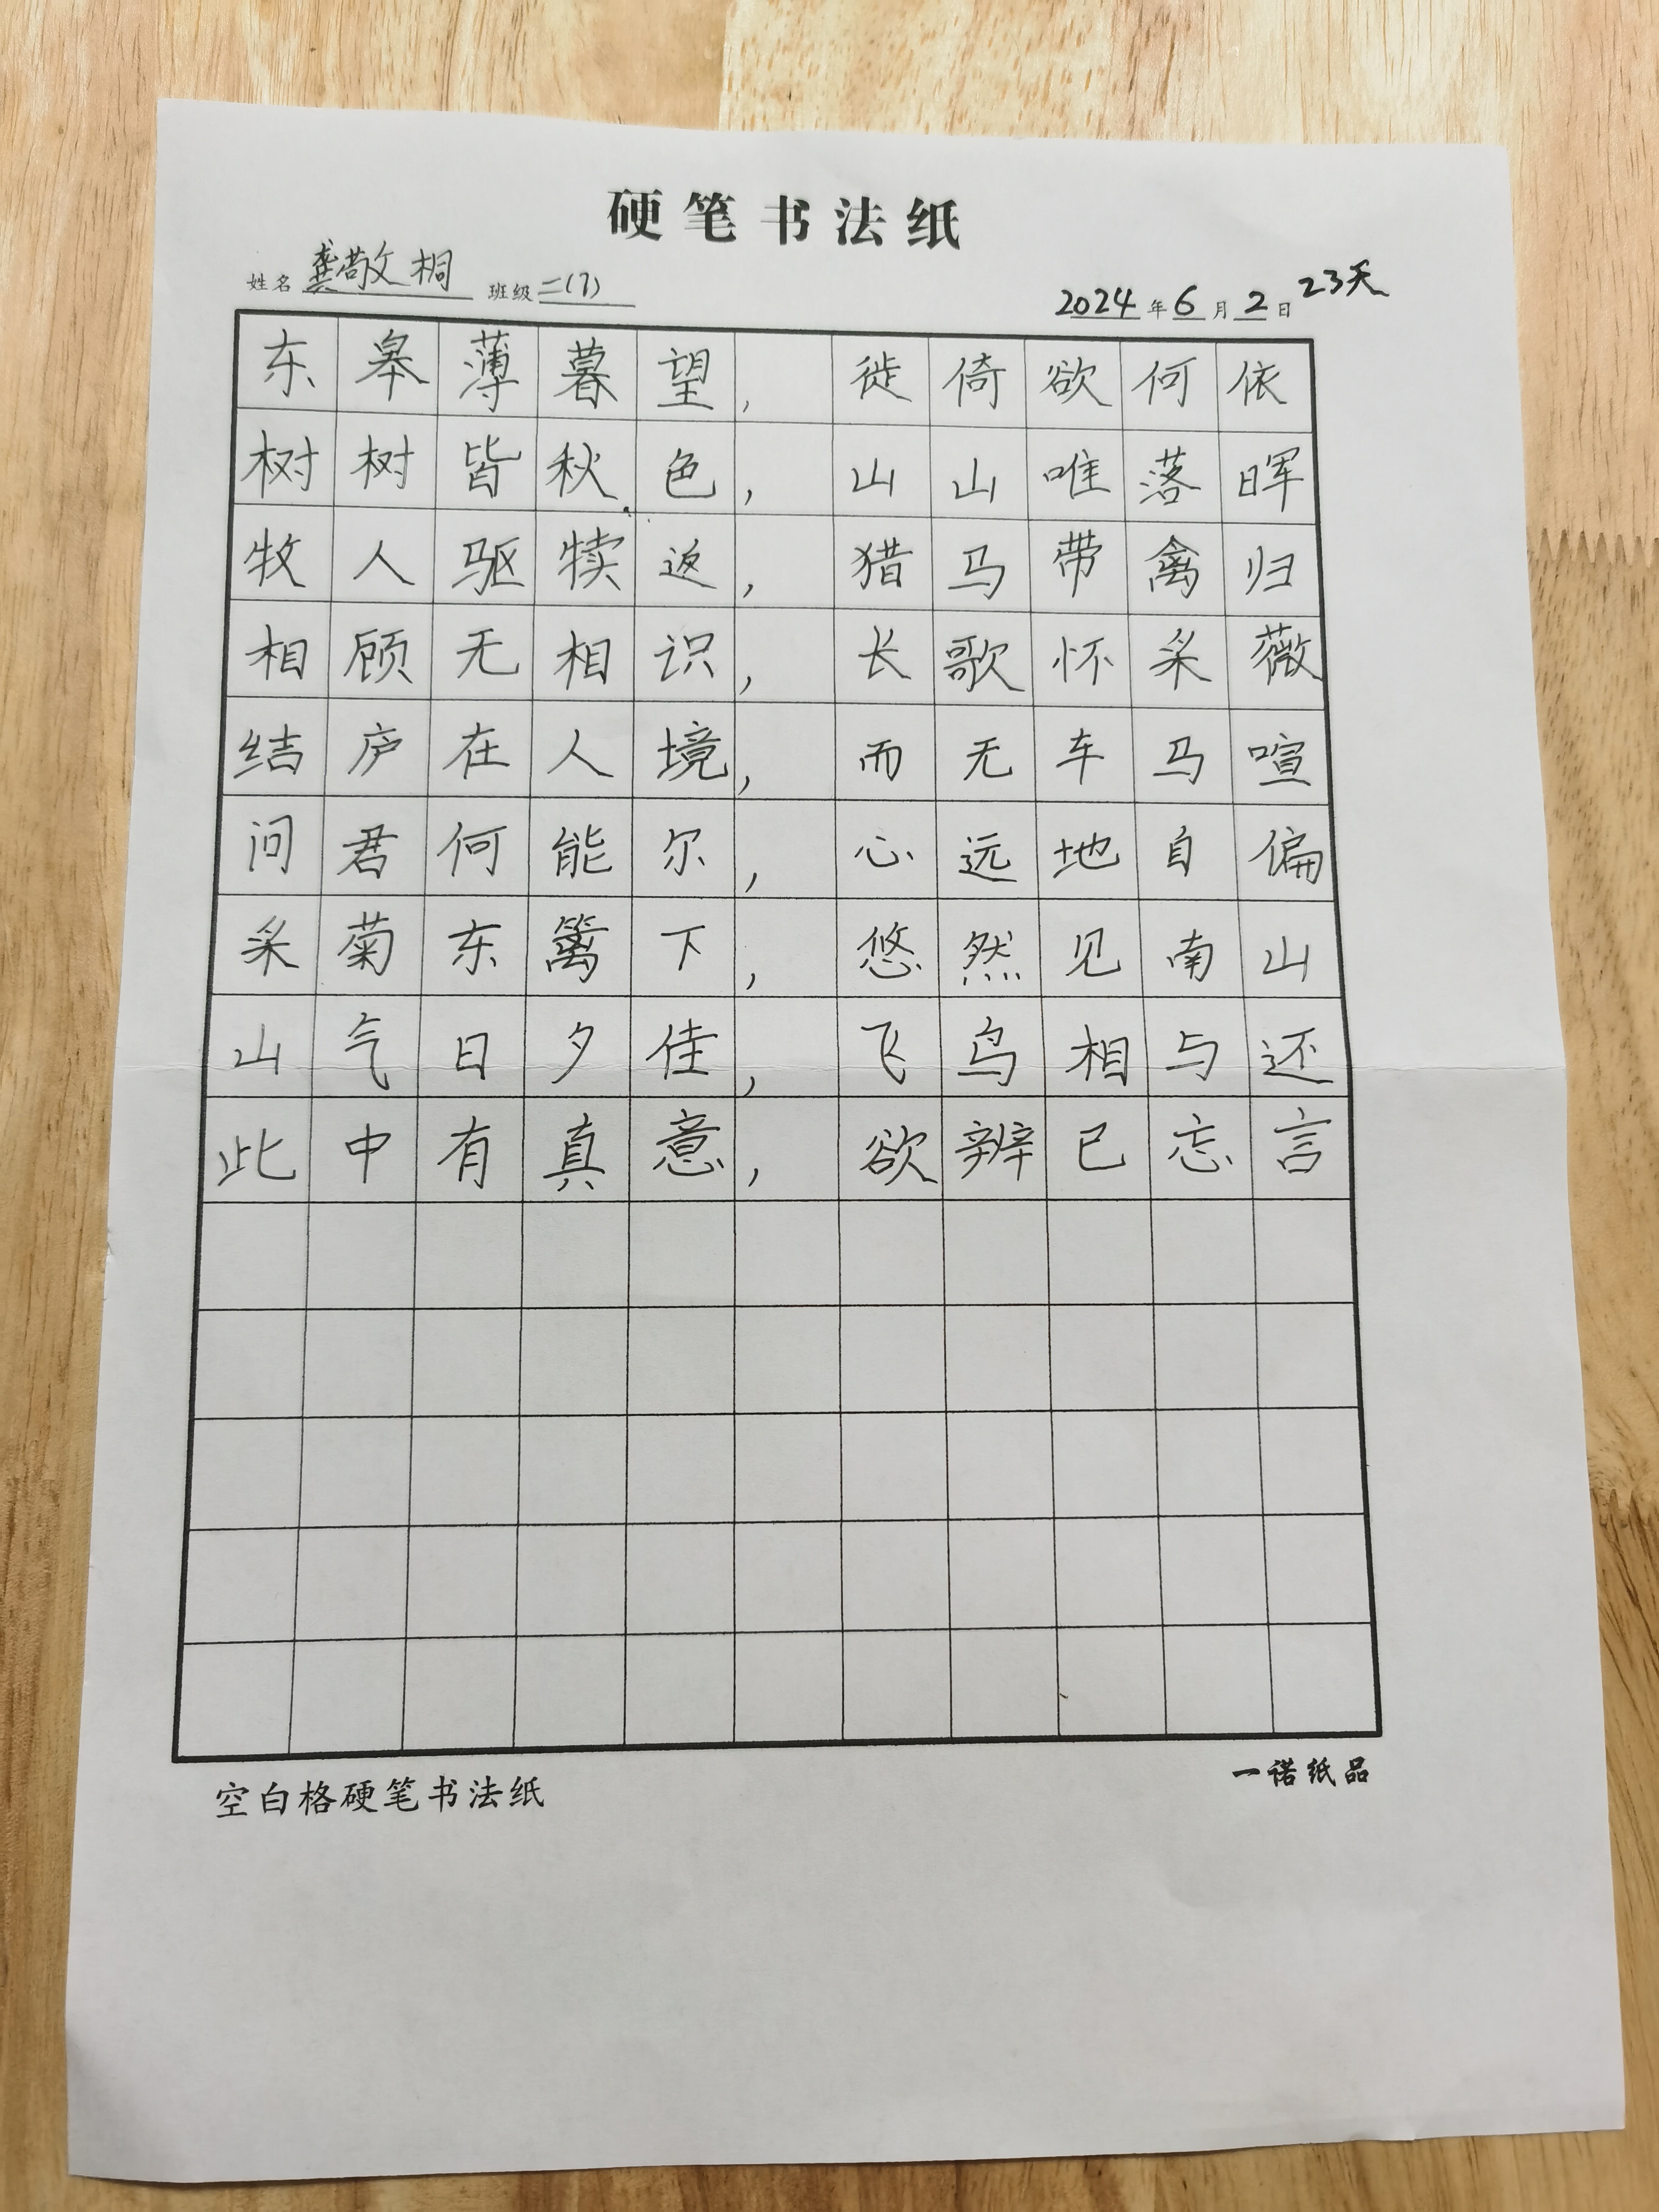 硬笔书法纸
姓名 龚敬文桐 班级 二(7) 2024年6月2日 23天
东皋薄暮望，徙倚欲何依
树树皆秋色，山山唯落晖
牧人驱犊返，猎马带禽归
相顾无相识，长歌怀采薇
结庐在人境，而无车马喧
问君何能尔，心远地自偏
采菊东篱下，悠然见南山
山气日夕佳，飞鸟相与还
此中有真意，欲辨已忘言
空白格硬笔书法纸 一诺纸品